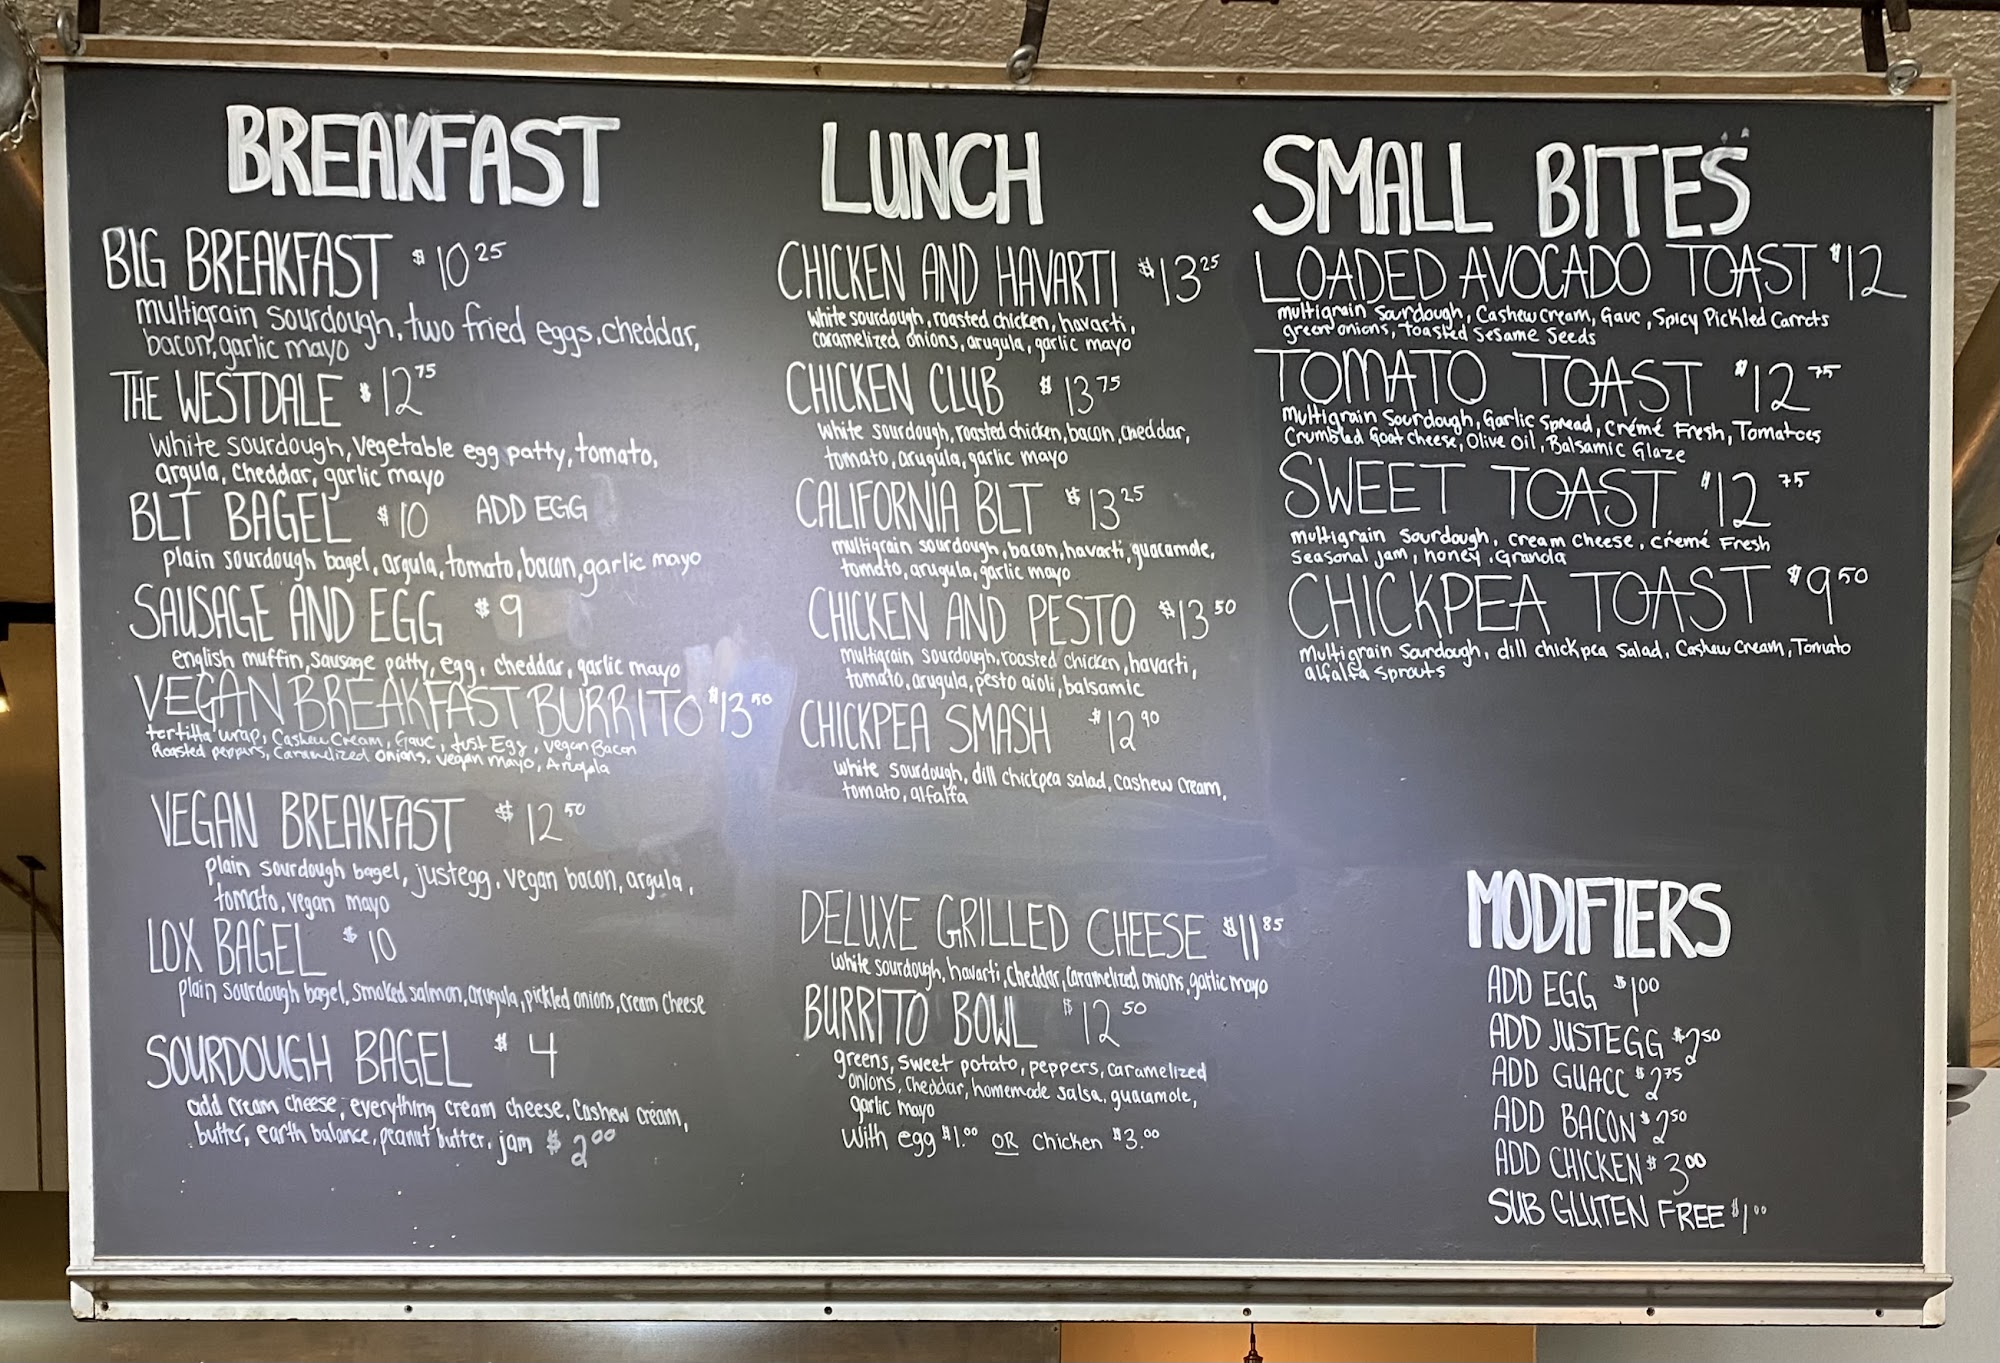 BREAKFAST
BIG BREAKFAST $10 25
multigrain sourdough, two fried eggs, cheddar,
bacon, garlic mayo
THE WESTDALE $12 75
white sourdough, vegetable egg patty, tomato,
argula, cheddar, garlic mayo
BLT BAGEL $10 ADD EGG
plain sourdough bagel, argula, tomato, bacon, garlic mayo
SAUSAGE AND EGG $9
english muffin, sausage patty, egg, cheddar, garlic mayo
VEGAN BREAKFAST BURRITO $13 50
tortilla wrap, Cashew Cream, Gauc, Just Egg, vegan Bacon
Roasted peppurs, Caramelized onions, vegan mayo, Arugala
VEGAN BREAKFAST $12 50
plain sourdough bagel, justegg, vegan bacon, argula,
tomato, vegan mayo
LOX BAGEL $10
plain sourdough bagel, smoked salmon, arugula, pickled onions, cream cheese
SOURDOUGH BAGEL $4
add cream cheese, everything cream cheese, Cashew cream,
butter, earth balance, peanut butter, jam $2 00
LUNCH
CHICKEN AND HAVARTI $13 25
white sourdough, roasted chicken, havarti,
caramelized onions, arugula, garlic mayo
CHICKEN CLUB $13 75
white sourdough, roasted chicken, bacon, cheddar,
tomato, arugula, garlic mayo
CALIFORNIA BLT $13 25
multigrain sourdough, bacon, havarti, guacamole,
tomato, arugula, garlic mayo
CHICKEN AND PESTO $13 50
multigrain sourdough, roasted chicken, havarti,
tomato, arugula, pesto aioli, balsamic
CHICKPEA SMASH $12 90
white sourdough, dill chickpea salad, cashew cream,
tomato, alfalfa
DELUXE GRILLED CHEESE $11 85
white sourdough, havarti, cheddar, caramelized onions, garlic mayo
BURRITO BOWL $12 50
greens, sweet potato, peppers, caramelized
onions, cheddar, homemade salsa, guacamole,
garlic mayo
with egg $1.00 OR chicken $3.00
SMALL BITES
LOADED AVOCADO TOAST $12
multigrain sourdough, Cashew cream, Gauc, Spicy Pickled Carrots
green onions, toasted Sesame Seeds
TOMATO TOAST $12 75
Multigrain Sourdough, Garlic Spread, Crémé Fresh, Tomatoes
Crumbled Goat cheese, Olive Oil, Balsamic Glaze
SWEET TOAST $12 75
multigrain Sourdough, cream cheese, crémé Fresh
Seasonal jam, honey, Granola
CHICKPEA TOAST $9 50
Multigrain Sourdough, dill chickpea Salad, Cashew Cream, Tomato
alfalfa Sprouts
MODIFIERS
ADD EGG $1 00
ADD JUSTEGG $2 50
ADD GUACC $2 75
ADD BACON $2 50
ADD CHICKEN $3 00
SUB GLUTEN FREE $1 00